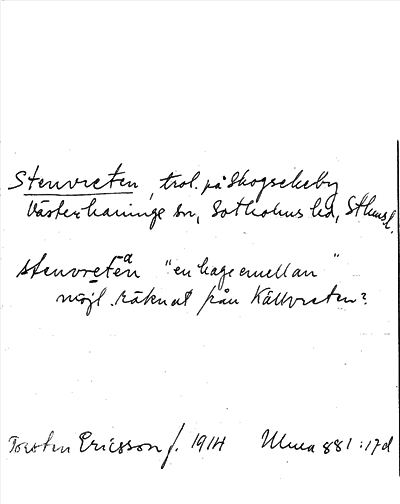 Stenvreten, trol. på Skogsekeby
Västerhaninge sn, Sotholms hd, Sthms l.
stenvretēn a
"en hage emellan"
möjl. räknat från Källvreten?
Torsten Ericsson f. 1914 Ulma 881:17d